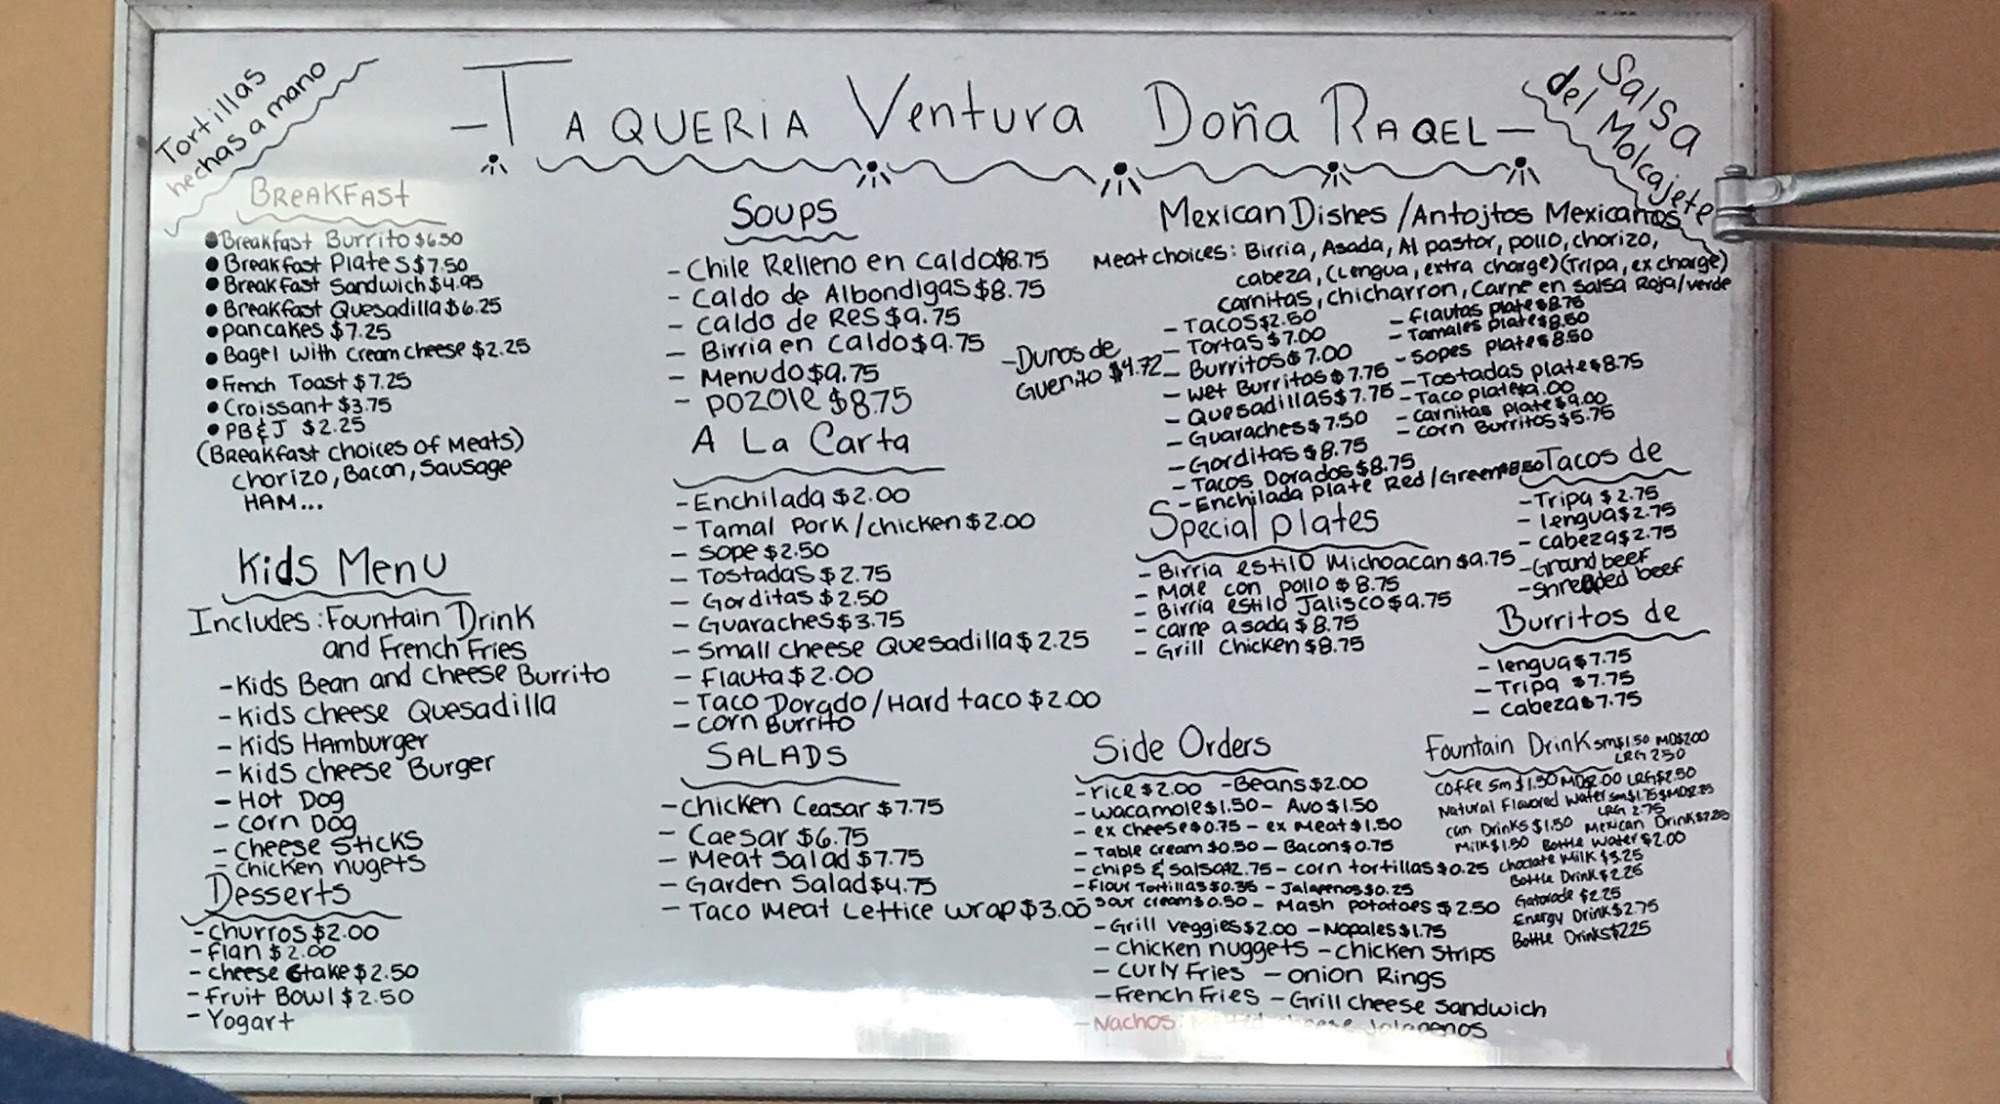 Tortillas
hechas a mano
-TAQUERIA Ventura Doña RAQEL-
Salsa
del Molcajete
BREAKFAST
Breakfast Burrito $6.50
Breakfast Plates $7.50
Breakfast Sandwich $4.95
Breakfast Quesadilla $6.25
pancakes $7.25
Bagel with cream cheese $2.25
French Toast $7.25
Croissant $3.75
PB&J $2.25
(Breakfast choices of Meats)
chorizo, Bacon, Sausage
HAM...
Kids Menu
Includes: Fountain Drink
and French Fries
-Kids Bean and cheese Burrito
-Kids cheese Quesadilla
-Kids Hamburger
-Kids cheese Burger
-Hot Dog
-corn Dog
-cheese sticks
-chicken nugets
Desserts
-churros $2.00
-flan $2.00
-cheese Stake $2.50
-Fruit Bowl $2.50
-Yogart
Soups
-Chile Relleno en caldo $8.75
-Caldo de Albondigas $8.75
-caldo de Res $9.75
-Birria en caldo $9.75
-Menudo $9.75
-pozole $8.75
-Duros de
Guerito $4.72
A La Carta
-Enchilada $2.00
-Tamal Pork/chicken $2.00
-sope $2.50
-Tostadas $2.75
-Gorditas $2.50
-Guaraches $3.75
-small cheese Quesadilla $2.25
-Flauta $2.00
-Taco Dorado/Hard taco $2.00
-corn Burrito
SALADS
-chicken Ceasar $7.75
-Caesar $6.75
-Meat Salad $7.75
-Garden Salad $4.75
-Taco Meat Lettice wrap $3.00
Mexican Dishes /Antojtos Mexicanos
Meat choices: Birria, Asada, Al pastor, pollo, chorizo,
cabeza, (Lengua, extra charge) (Tripa, ex charge)
carnitas, chicharron, carne en salsa Roja/verde
-Tacos $2.50
-Tortas $7.00
-Burritos $7.00
-wet Burritos $7.75
-Quesadillas $7.75
-Guaraches $7.50
-Gorditas $8.75
-Tacos Dorados $8.75
-Enchilada plate Red/Green $8.50
-flautas plate $8.75
-Tamales plate $8.50
-sopes plate $8.50
-Tostadas plate $8.75
-Taco plate $9.00
-carnitas plate $9.00
-corn Burritos $5.75
Special plates
-Birria estilo Michoacan $9.75
-Mole con pollo $8.75
-Birria estilo Jalisco $9.75
-carne asada $8.75
-Grill chicken $8.75
Tacos de
-Tripa $2.75
-lengua $2.75
-cabeza $2.75
-Ground beef
-shredded beef
Burritos de
-lengua $7.75
-Tripa $7.75
-cabeza $7.75
Side Orders
-rice $2.00 -Beans $2.00
-wacamole $1.50 - Avo $1.50
-ex cheese $0.75 - ex Meat $1.50
-Table cream $0.50 - Bacon $0.75
-chips & salsa $2.75 - corn tortillas $0.25
-flour Tortillas $0.35 - Jalapenos $0.25
-sour cream $0.50 - Mash potatoes $2.50
-Grill veggies $2.00 -Nopales $1.75
-chicken nuggets -chicken strips
-curly Fries -onion Rings
-French Fries -Grill cheese sandwich
-Nachos: cheese Jalapenos
Fountain Drink sm $1.50 MD $2.00
LRG 2.50
coffe sm $1.50 MD 2.00 LRG $2.50
Natural Flavored water sm $1.75 $MD 2.25
LRG 2.75
can Drinks $1.50 Mexican Drink
Milk $1.50 Bottle water $2.00
choclate Milk $3.25
Bottle Drink $2.25
Gatorade $2.25
Energy Drink $2.75
Bottle Drinks $2.25